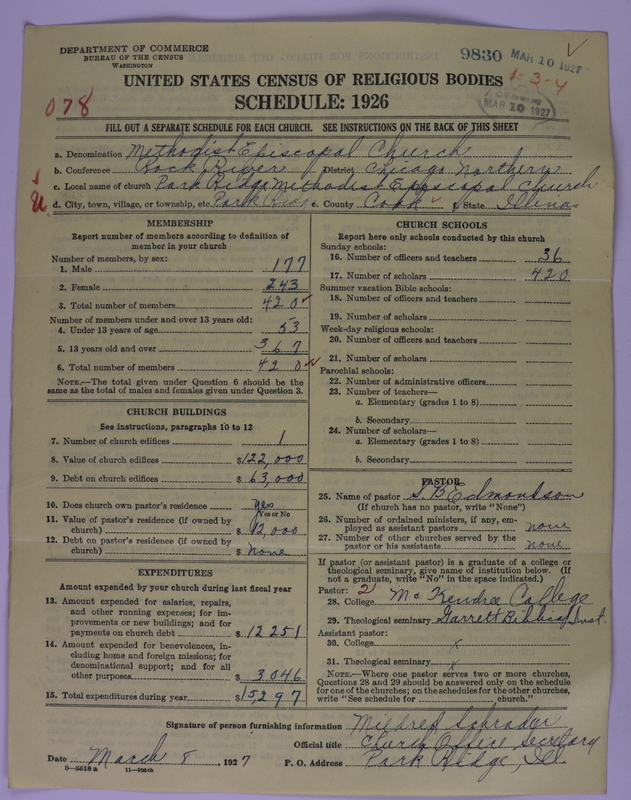 DEPARTMENT OF COMMERCE
BUREAU OF THE CENSUS
WASHINGTON
9830 MAR 10 1927
1-3-4
MAR 10 1927
078
UNITED STATES CENSUS OF RELIGIOUS BODIES
SCHEDULE: 1926
FILL OUT A SEPARATE SCHEDULE FOR EACH CHURCH. SEE INSTRUCTIONS ON THE BACK OF THIS SHEET
a. Denomination Methodist Episcopal Church
b. Conference Rock River District Chicago Northern
c. Local name of church Park Ridge Methodist Episcopal Church
d. City, town, village, or township, etc. Park Ridge e. County Cook f. State Illinois
MEMBERSHIP
Report number of members according to definition of
member in your church
Number of members, by sex:
1. Male 177
2. Female 243
3. Total number of members 420
Number of members under and over 13 years old:
4. Under 13 years of age 53
5. 13 years old and over 367
6. Total number of members 420
NOTE.—The total given under Question 6 should be the
same as the total of males and females given under Question 3.
CHURCH BUILDINGS
See instructions, paragraphs 10 to 12
7. Number of church edifices 1
8. Value of church edifices $122,000
9. Debt on church edifices $ 63,000
10. Does church own pastor's residence Yes
Yes or No
11. Value of pastor's residence (if owned by
church) $ 12,000
12. Debt on pastor's residence (if owned by
church) $ none
EXPENDITURES
Amount expended by your church during last fiscal year
13. Amount expended for salaries, repairs,
and other running expenses; for im-
provements or new buildings; and for
payments on church debt $ 12251
14. Amount expended for benevolences, in-
cluding home and foreign missions; for
denominational support; and for all
other purposes $ 3,046
15. Total expenditures during year $15,297
CHURCH SCHOOLS
Report here only schools conducted by this church
Sunday schools:
16. Number of officers and teachers 36
17. Number of scholars 420
Summer vacation Bible schools:
18. Number of officers and teachers
19. Number of scholars
Week-day religious schools:
20. Number of officers and teachers
21. Number of scholars
Parochial schools:
22. Number of administrative officers
23. Number of teachers—
a. Elementary (grades 1 to 8)
b. Secondary
24. Number of scholars—
a. Elementary (grades 1 to 8)
b. Secondary
PASTOR
25. Name of pastor S. B. Edmondson
(If church has no pastor, write "None")
26. Number of ordained ministers, if any, em-
ployed as assistant pastors none
27. Number of other churches served by the
pastor or his assistants none
If pastor (or assistant pastor) is a graduate of a college or
theological seminary, give name of institution below. (If
not a graduate, write "No" in the space indicated.)
Pastor: 2
28. College McKendree College
29. Theological seminary Garrett Biblical Inst.
Assistant pastor:
30. College x
31. Theological seminary x
NOTE.—Where one pastor serves two or more churches,
Questions 28 and 29 should be answered only on the schedule
for one of the churches; on the schedules for the other churches,
write "See schedule for church."
Signature of person furnishing information Mildred Schrader
Official title Church Office Secretary
Date March 8, 1927 P. O. Address Park Ridge, Ill.